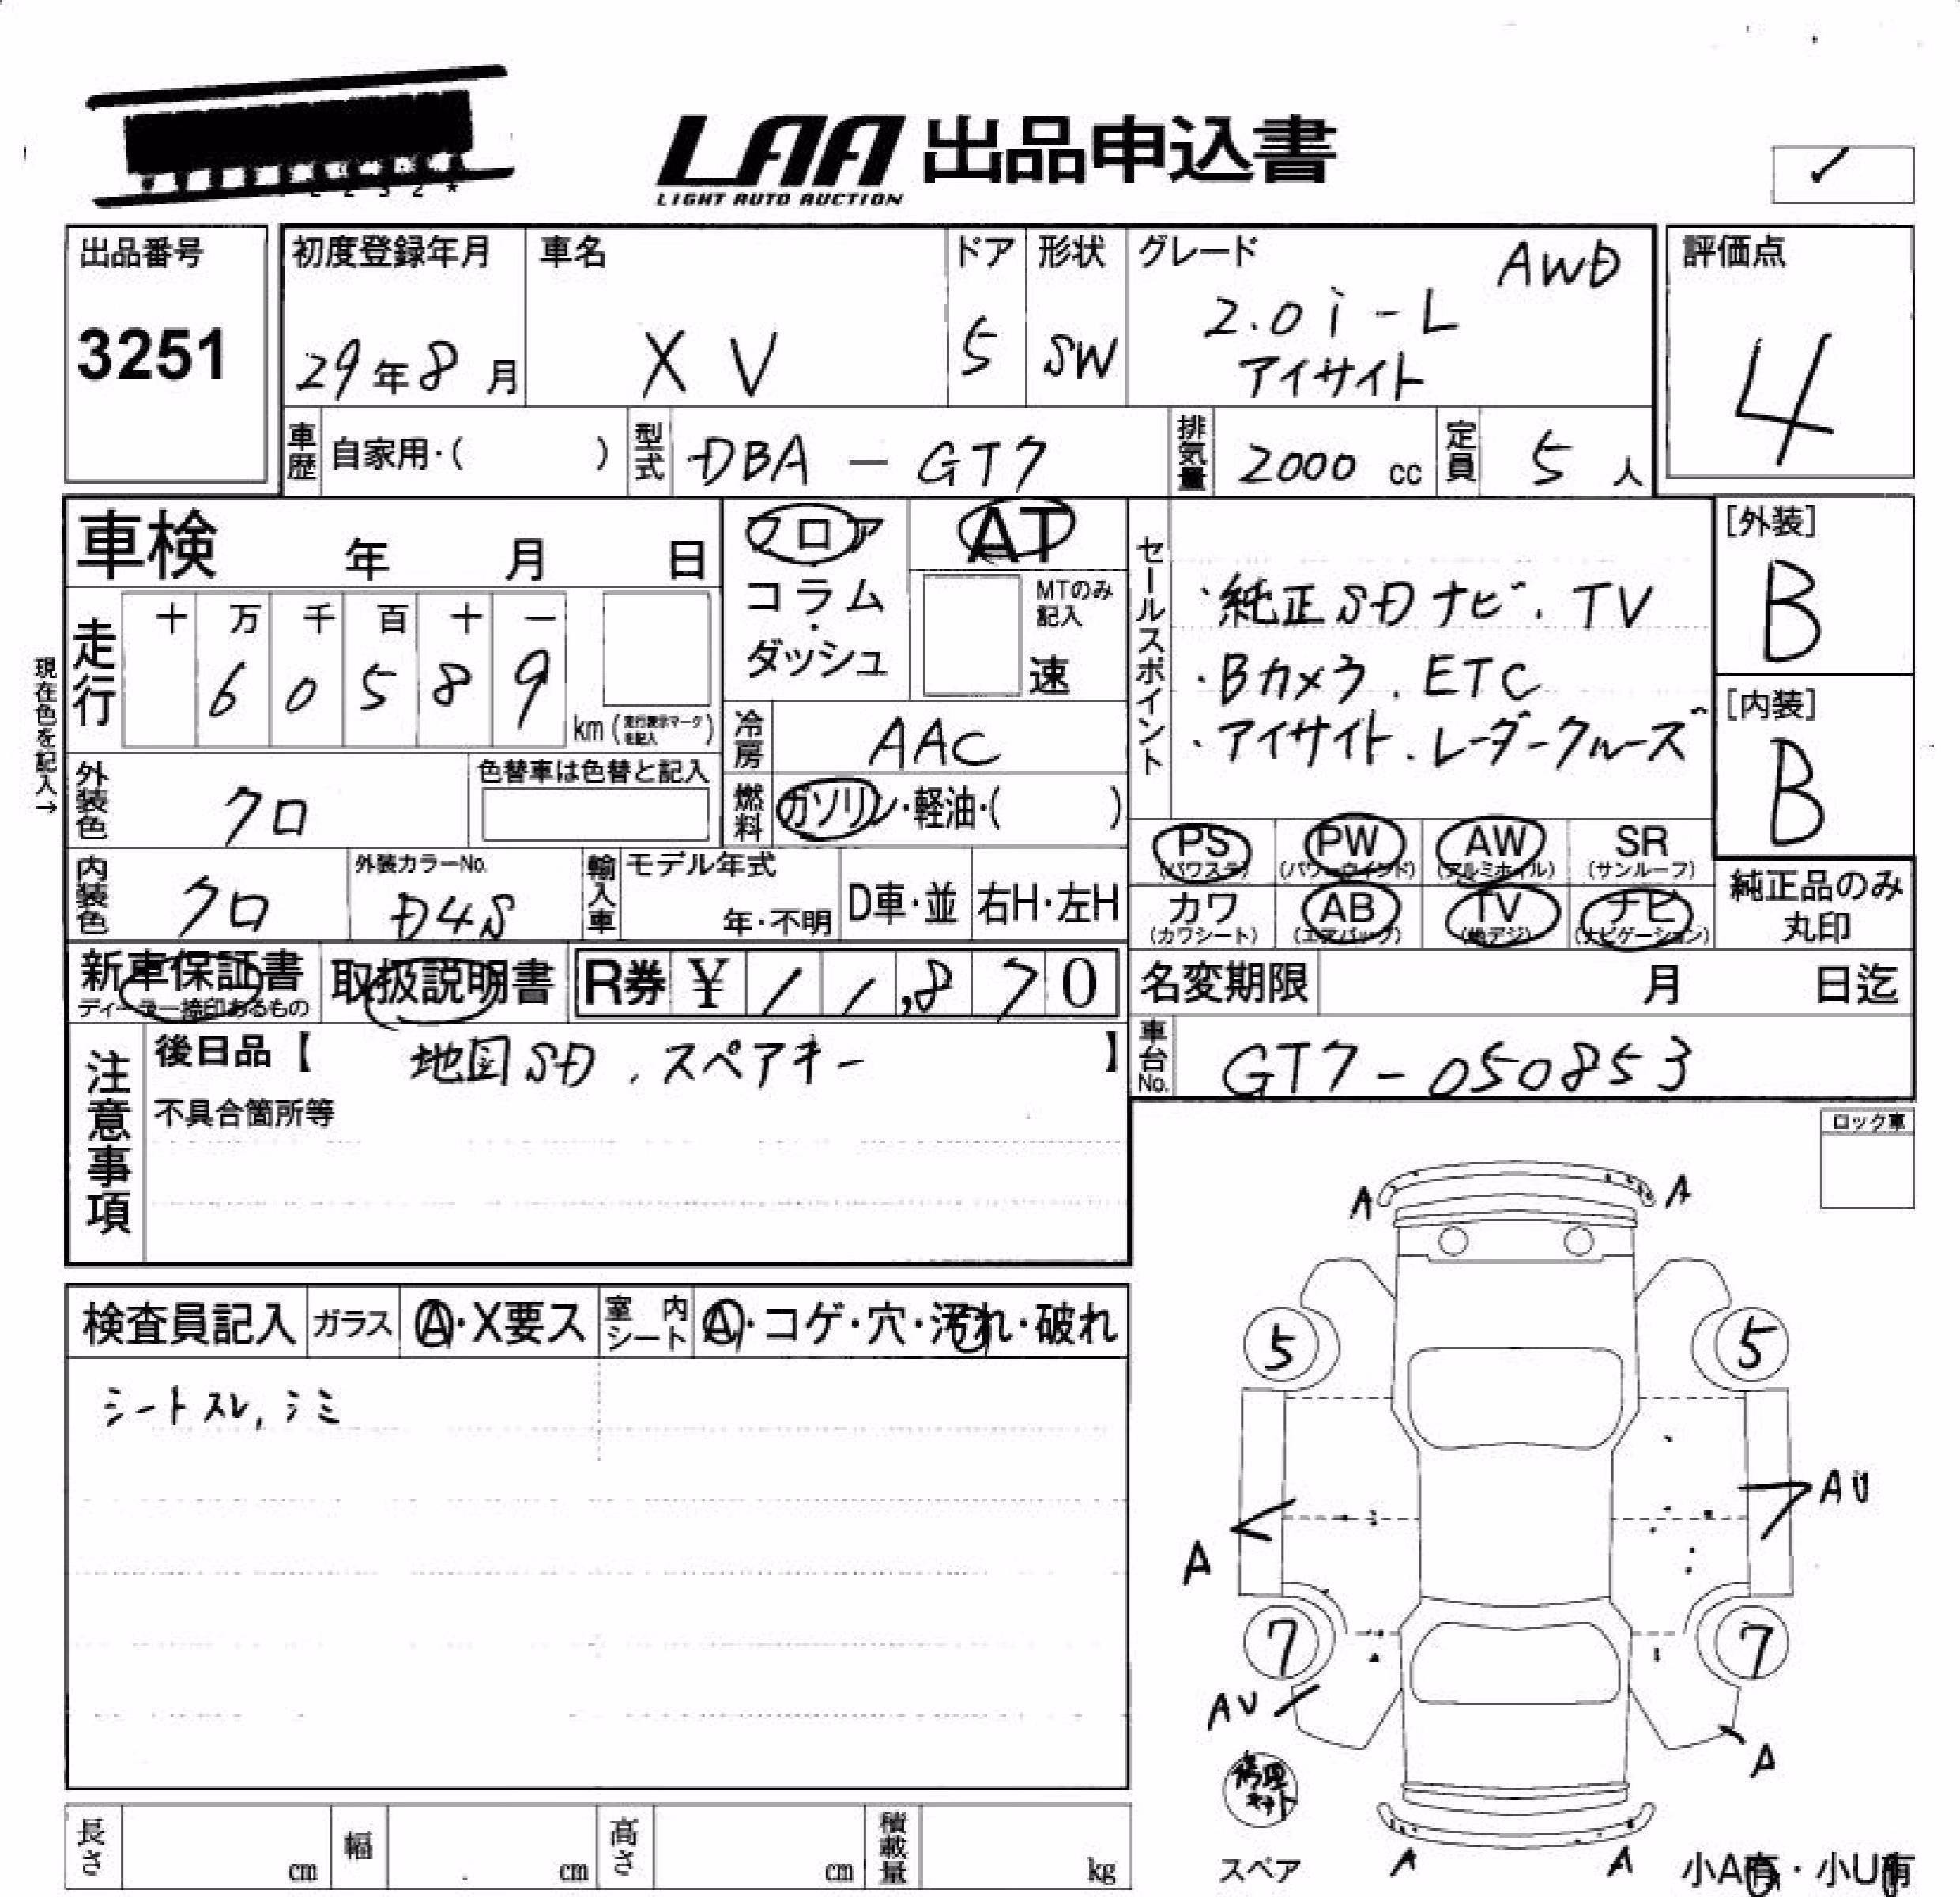 LAA 出品申込書
LIGHT AUTO AUCTION
出品番号
3251
初度登録年月
29年8月
車名
XV
ドア
5
形状
SW
グレード
AWD
2.0i-L
アイサイト
評価点
4
車歴 自家用・( )
型式 DBA-GT7
排気量 2000cc
定員 5人
車検 年 月 日
フロア
コラム・
ダッシュ
AT
MTのみ
記入
速
セールスポイント
・純正SDナビ.TV
・Bカメラ.ETC
・アイサイト.レーダークルーズ
[外装]
B
[内装]
B
現在色を記入→
走行
十 万 千 百 十 一
6 0 5 8 9
km(走行表示マークを記入)
冷房 AAC
外装色 クロ
色替車は色替と記入
燃料 ガソリン・軽油・( )
PS (パワステ)
PW (パワーウインド)
AW (アルミホイル)
SR (サンルーフ)
カワ (カワシート)
AB (エアバック)
TV (地デジ)
ナビ (ナビゲーション)
純正品のみ
丸印
内装色 クロ
外装カラーNo.
D4S
輸入車
モデル年式
年・不明
D車・並
右H・左H
新車保証書
ディーラー捺印あるもの
取扱説明書
R券 ¥ / /,870
名変期限 月 日迄
車台No. GT7-050853
注意事項
後日品【 地図SD.スペアキー 】
不具合箇所等
ロック車
検査員記入
ガラス A・X要ス
室内シート A・コゲ・穴・汚れ・破れ
シートスレ,シミ
A A
5 5
A AU
7 7
AU A
修理キット
スペア
A A
小A有・小U有
長さ cm
幅 cm
高さ cm
積載量 kg